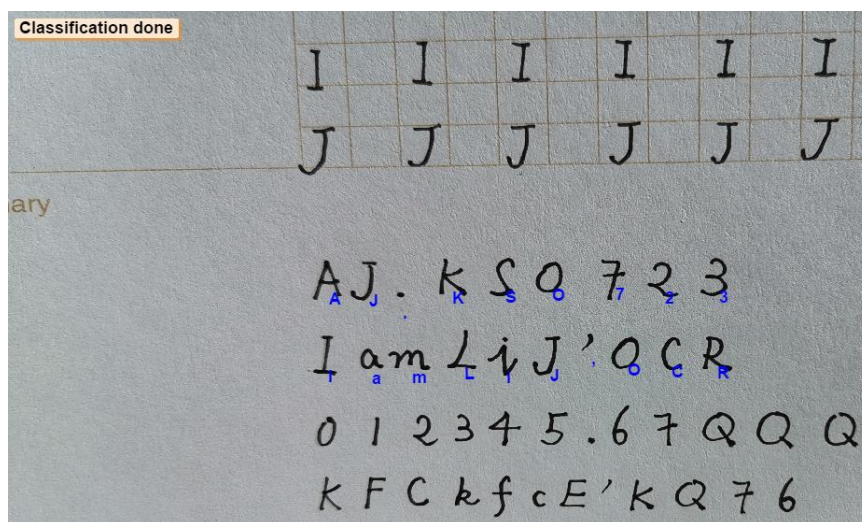 Classification done
I I I I I I
J J J J J J
ary
A J . K S O 7 2 3
A J . K S O 7 2 3
I a m L i J ' O C R
I a m L i J ' O C R
0 1 2 3 4 5 . 6 7 Q Q Q
K F C k f c E ' K Q 7 6